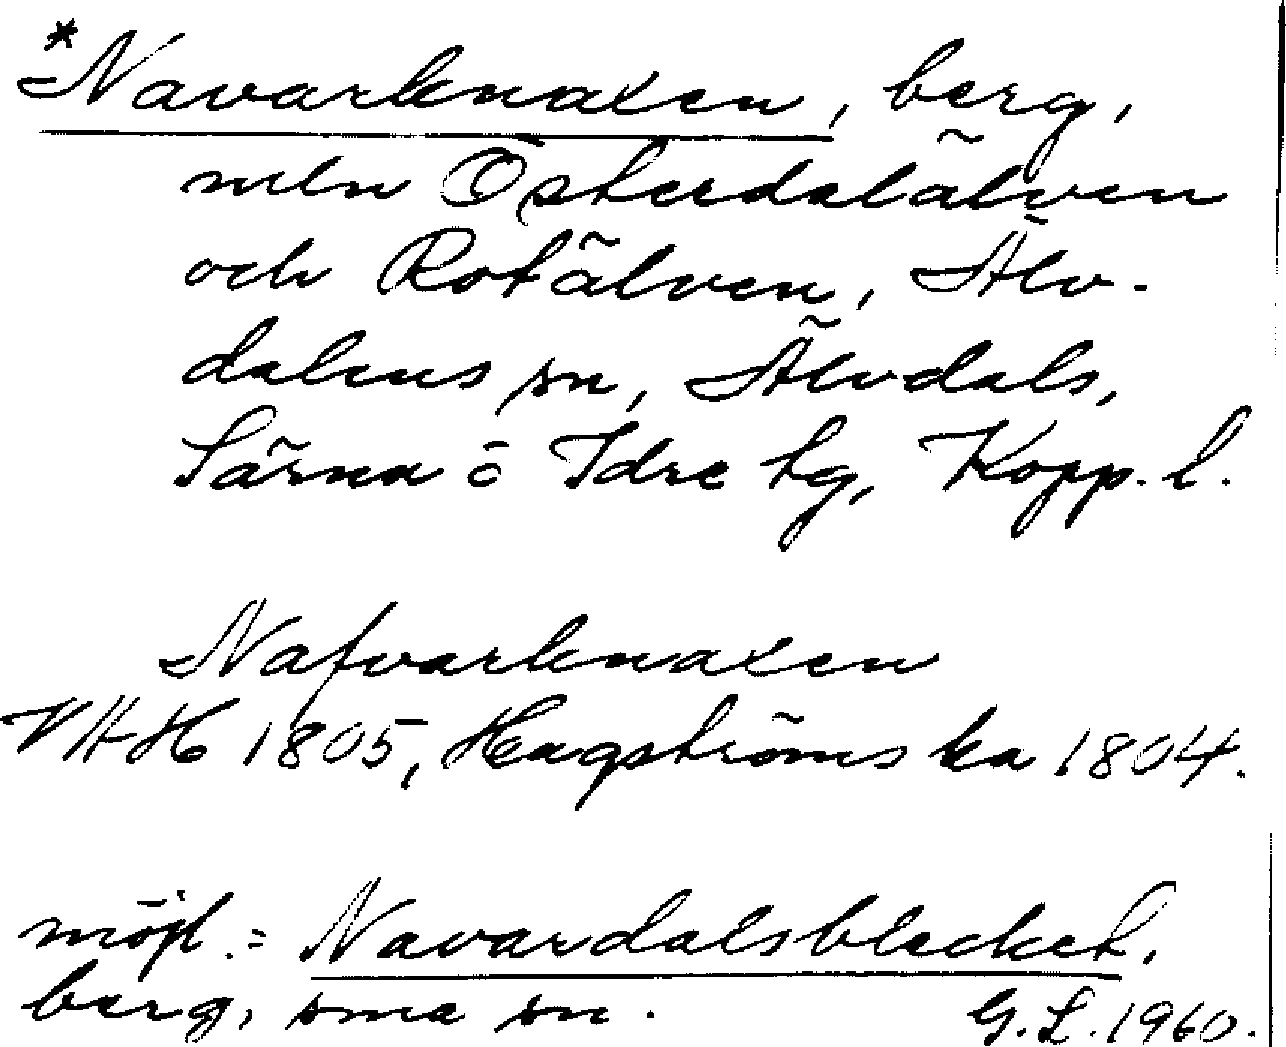 *Navarknaxen, berg,
mln Österdalälven
och Rotälven, Älv-
dalens sn, Älvdals,
Särna o Idre tg, Kopp. l.
Nafvarknaxen
VHH 1805, Hagströms ka 1804.
möjl. = Navardalsblecket,
berg, sma sn.
G. L. 1960.